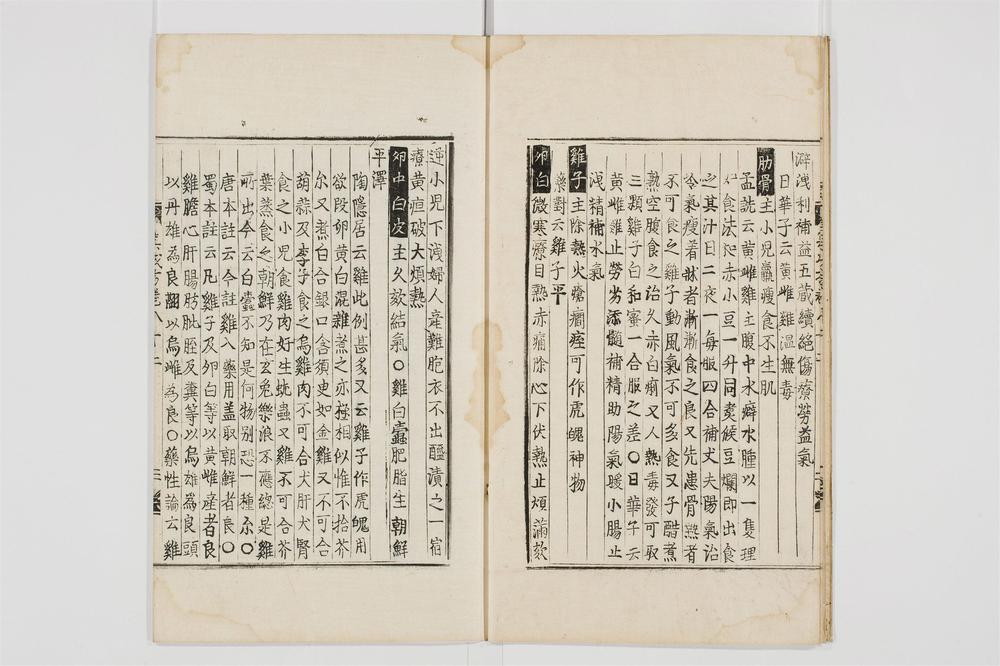 澼洩利補益五蔵續絶傷療勞益氣
日華子云黃雌雞溫無毒
肋骨主小兒羸瘦食不生肌
孟詵云黃雌雞主腹中水癖水腫以一隻理
如食法和赤小豆一升同煑候豆爛即出食
之其汁日二夜一每服四合補丈夫陽氣治
冷氣瘦着牀者漸漸食之良又先患骨熱者
不可食之雞子動風氣不可多食又子醋煮
熟空腹食之治久赤白痢又人熱毒發可取
三顆雞子白和蜜一合服之差○日華子云
黃雌雞止勞劣添髓補精助陽氣暖小腸止
洩精補水氣
雞子主除熱火瘡癎痓可作虎魄神物
藥對云雞子平
卵白微寒療目熱赤痛除心下伏熱止煩滿欬
逆小兒下洩婦人産難胞衣不出醯漬之一宿
療黃疸破大煩熱
卵中白皮主久欬結氣○雞白蠹肥脂生朝鮮
平澤
陶隱居云雞此例甚多又云雞子作虎魄用
欲毈卵黃白混雜煮之亦極相似惟不拾芥
尒又煮白合銀口含須臾如金雞又不可合
葫蒜及李子食之烏雞肉不可合犬肝犬腎
食之小兒食雞肉好生蚘蟲又雞不可合芥
葉蒸食之朝鮮乃在玄兎樂浪不應總是雞
所出今云白蠹不知是何物別恐一種尒○
唐本註云今註雞入藥用盖取朝鮮者良○
蜀本註云凡雞子及卵白等以黃雌産者良
雞膽心肝腸肪肶胵及糞等以烏雄為良頭
以丹雄為良翮以烏雌為良○藥性論云雞